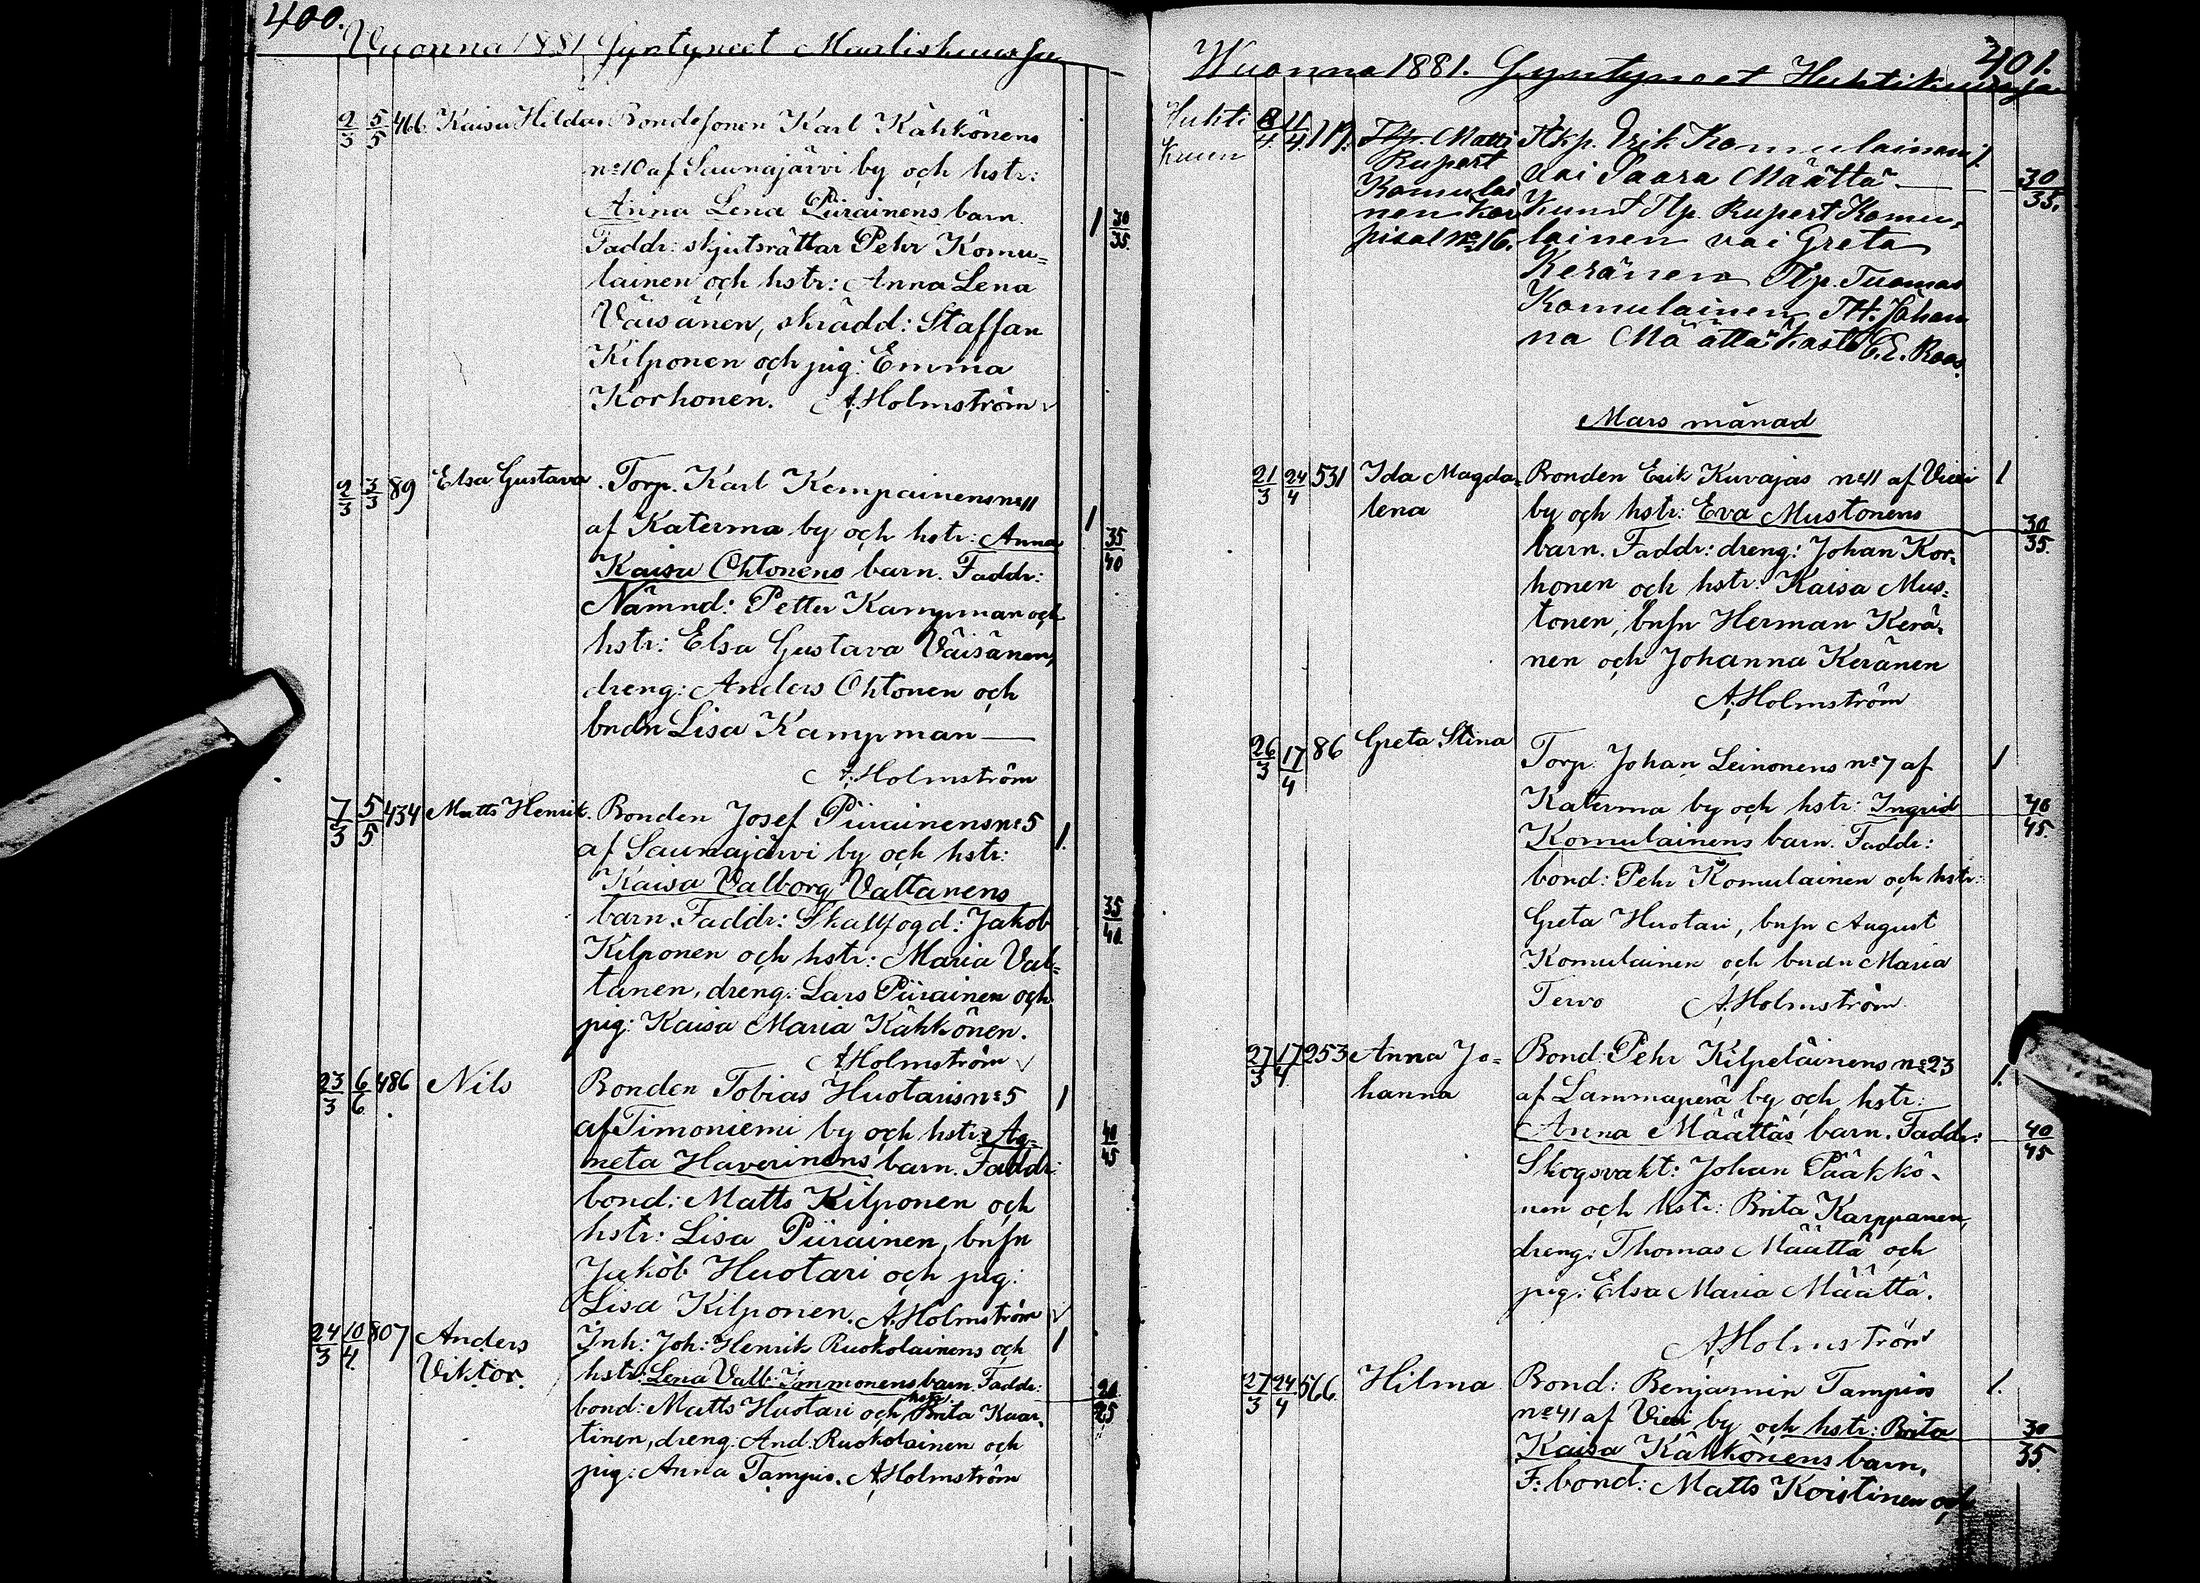 400.
Vuonna 1881 Syntyneet Maaliskuussa
2/3 5/5 466 Kaisa Hilda. Bondesonen Karl Kähkönens
no 10 af Saunajärvi by och hstr:
Anna Lena Piirainens barn.
Faddr: skjutsrättar Pehr Komu=
lainen och hstr: Anna Lena
Väisänen, skrädd: Staffan
Kilponen och pig: Emma
Korhonen. A. Holmström
1 30/35
2/3 3/3 89 Elsa Gustava. Torp. Karl Kempainens no 11
af Katerma by och hstr: Anna
Kaisa Ohtonens barn. Faddr:
Nämnd: Petter Kampman och
hstr: Elsa Gustava Väisänen,
dreng: Anders Ohtonen och
bndn Lisa Kampman
A. Holmström
1 35/40
7/3 5/5 434 Matts Henrik. Bonden Josef Piirainens no 5
af Saunajärvi by och hstr:
Kaisa Valborg Valtanens
barn. Faddr: Skallfogd: Jakob
Kilponen och hstr: Maria Val=
tanen, dreng: Lars Piirainen och
pig: Kaisa Maria Kähkönen.
A. Holmström
1. 35/40
23/3 6/6 486 Nils Bonden Tobias Huotaris no 5
af Timoniemi by och hstr: Ag=
neta Haverinens barn. Faddr:
bond: Matts Kilponen och
hstr: Lisa Piirainen, bnsn
Jakob Huotari och pig:
Lisa Kilponen. A. Holmström
1 40/45
24/3 10/4 807 Anders Inh: Joh: Henrik Ruokolainens och
Viktor. hstr: Lena Valb: Immonens barn. Faddr:
bond: Matts Huotari och hstr: Brita Kaar=
tinen, dreng: And: Ruokolainen och
pig: Anna Tampio. A. Holmström
1 20/25
401.
Wuonna 1881. Syntyneet Huhtikuussa
Huhti
kuun
8/4 11/4 117. Tlp. Matti Itkp. Erik Komulainen
Rupert vai Saara Määttä
Komulai Kumt Tlp. Rupert Komu=
nen Kor lainen vai Greta
pisal no 16. Keränen Tlp. Tuomas
Komulainen TH. Johan
na Määttä. Kasti C. E. Roos.
1. 30/35.
Mars månad
21/3 24/4 531 Ida Magda= Bonden Erik Kuvajas no 11 af Vieri
lena by och hstr: Eva Mustonens
barn. Faddr: dreng: Johan Kor=
honen och hstr: Kaisa Mus=
tonen, bnsn Herman Kerä=
nen och Johanna Keränen
A. Holmström
1 30/35.
26/3 17/4 86 Greta Stina Torp. Johan Leinonens no 7 af
Katerma by och hstr: Ingrid
Komulainens barn. Faddr:
bond: Pehr Komulainen och hstr:
Greta Huotari, bnsn August
Komulainen och bndn Maria
Tervo A. Holmström
1 40/45
27/3 17/4 253 Anna Jo= Bond: Pehr Kilpeläinens no 23
hanna af Lammaperä by och hstr:
Anna Määttäs barn. Faddr:
Skogsvakt: Johan Pääkkö=
nen och hstr: Brita Karppanen,
dreng: Thomas Määttä och
pig: Elsa Maria Määttä.
A. Holmström
1. 40/45
27/3 24/4 566. Hilma Bond: Benjamin Tampios
no 41 af Vieri by och hstr: Brita
Kaisa Kähkönens barn.
F: bond: Matts Koistinen och
1. 30/35.